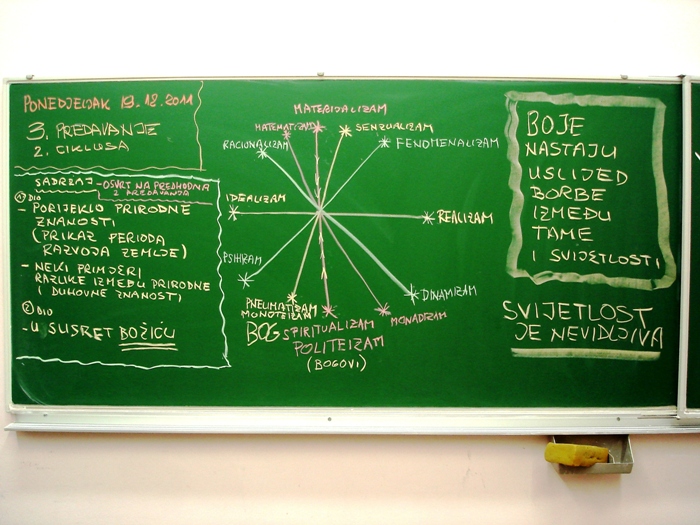 PONEDJELJAK 19.12.2011
3. PREDAVANJE
2. CIKLUSA
SADRZAJ - OSVRT NA PREDHODNA
2 PREDAVANJA
1 DIO
- PORIJEKLO PRIRODNE
ZNANOSTI
(PRIKAZ PERIODA
RAZVOJA ZEMLJE)
- NEKI PRIMJERI
RAZLIKE IZMEĐU PRIRODNE
I DUHOVNE ZNANOSTI
2 DIO
- U SUSRET BOŽIĆU
MATERIJALIZAM
MATEMATIZAM
SENZUALIZAM
RACIONALIZAM
FENOMENALIZAM
IDEALIZAM
REALIZAM
PSIHIZAM
DINAMIZAM
PNEUMATIZAM
MONOTEIZAM
MONADIZAM
BOG
SPIRITUALIZAM
POLITEIZAM
(BOGOVI)
BOJE
NASTAJU
USLIJED
BORBE
IZMEĐU
TAME
I SVIJETLOSTI
SVIJETLOST
JE NEVIDLJIVA